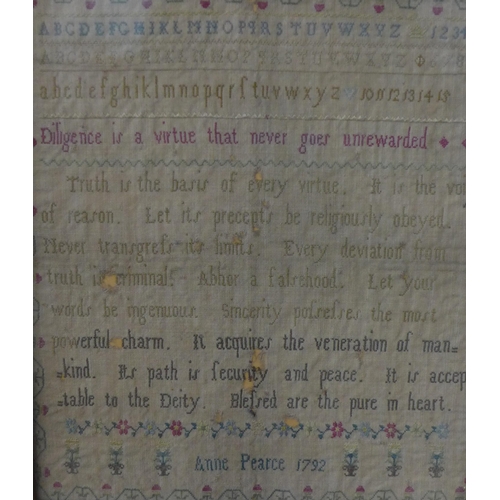 ABCDEFGHIJKLMNOPQRSTUVWXYZ 1234
ABCDEFGHIJKLMNOPQRSTUVWXYZ
abcdefghijklmnopqrſtuvwxyz 10 11 12 13 14 15
Diligence is a virtue that never goes unrewarded
Truth is the basis of every virtue. It is the voi
of reason. Let its precepts be religiously obeyed.
Never transgreſs its limits. Every deviation from
truth is criminal. Abhor a falsehood. Let your
words be ingenuous. Sincerity poſseſses the most
powerful charm. It acquires the veneration of man=
=kind. Its path is ſecurity and peace. It is accep
=table to the Deity. Bleſsed are the pure in heart.
Anne Pearce 1792